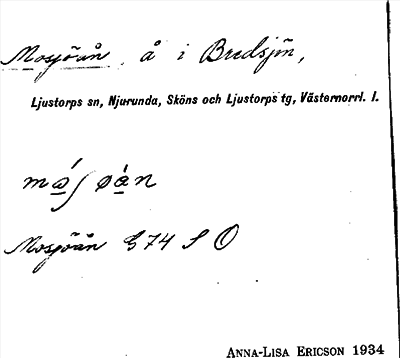 Mosjöån, å i Bredsjön,
Ljustorps sn, Njurunda, Sköns och Ljustorps tg, Västernorrl. l.
Mosjöån G 74 S O
ANNA-LISA ERICSON 1934